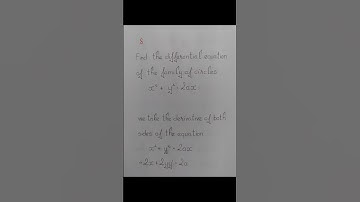 Find the differential equation
of the family of circles
x² + y² = 2ax
we take the derivative of both
sides of the equation
x² + y² = 2ax
2x + 2yy' = 2a